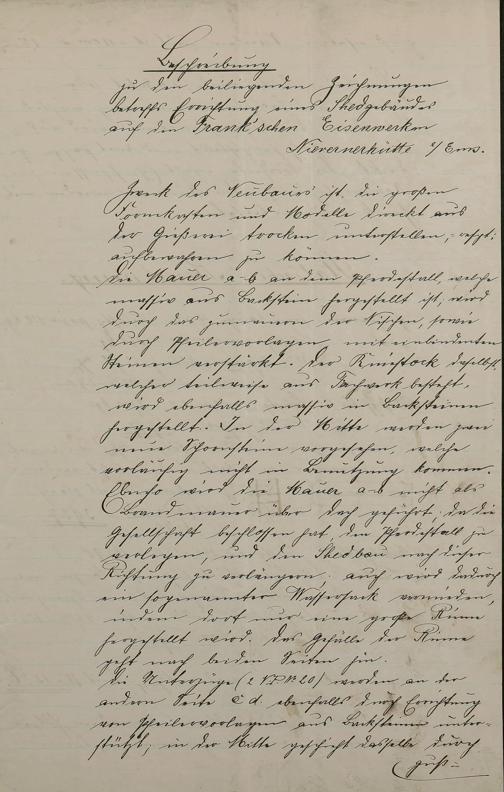 Beschreibung
zu den beiliegenden Zeichnungen
betreffs Errichtung eines Shedgebäudes
auf den Frank'schen Eisenwerken
Nievernerhütte a/Ems.
Zweck des Neubaues ist, die großen
Formkasten und Modelle direkt aus
der Gießerei trocken unterstellen, resp:
aufbewahren zu können.
Die Mauer a-b an dem Pferdestall, welche
massiv aus Backstein hergestellt ist, wird
durch das zumauern der Nischen, sowie
durch Pfeilervorlagen, mit einbindenden
Steinen verstärkt. Der Kniestock daselbst,
welcher teilweise aus Fachwerk besteht,
wird ebenfalls massiv in Backsteinen
hergestellt. In der Mitte werden zwei
neue Schornsteine vorgesehen, welche
vorläufig nicht in Benützung kommen.
Ebenso wird die Mauer a-b nicht als
Brandmauer über Dach geführt, da die
Gesellschaft beschlossen hat, den Pferdestall zu
verlegen, und den Shedbau nach dieser
Richtung zu verlängern; auch wird dadurch
ein sogenannter Wassersack vermieden,
indem dort nur eine große Rinne
hergestellt wird. Das Gefälle der Rinne
geht nach beiden Seiten hin.
Die Unterzüge (2 NPN 20) werden an der
andern Seite c d. ebenfalls durch Errichtung
von Pfeilervorlagen aus Backsteinen unter-
stützt; in der Mitte geschieht dasselbe durch
guß=